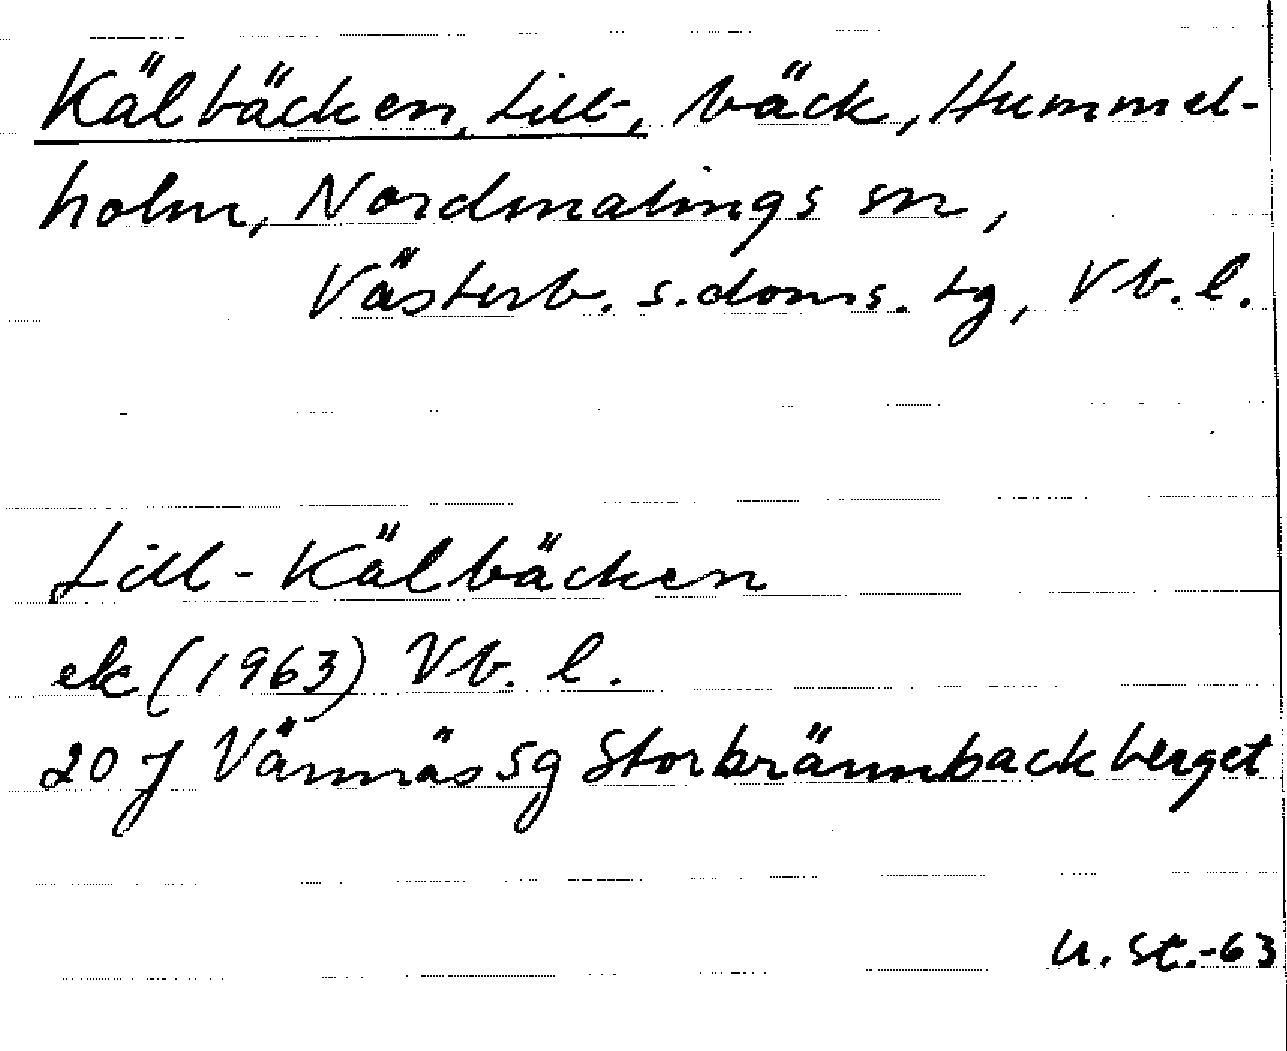 Kälbäcken, Lill-, bäck, Hummel-
holm, Nordmalings sn,
Västerb. s. doms. tg, Vb. l.
Lill-Kälbäcken
ek (1963) Vb. l.
20 J Värnäs 5g Storbrännbackberget
U. St. -63